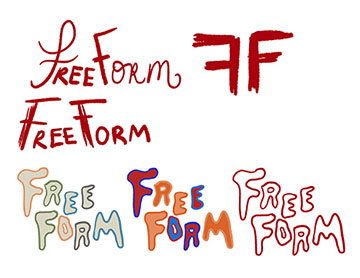 FreeForm
FF
FreeForm
FREE
FORM
FREE
FORM
FREE
FORM